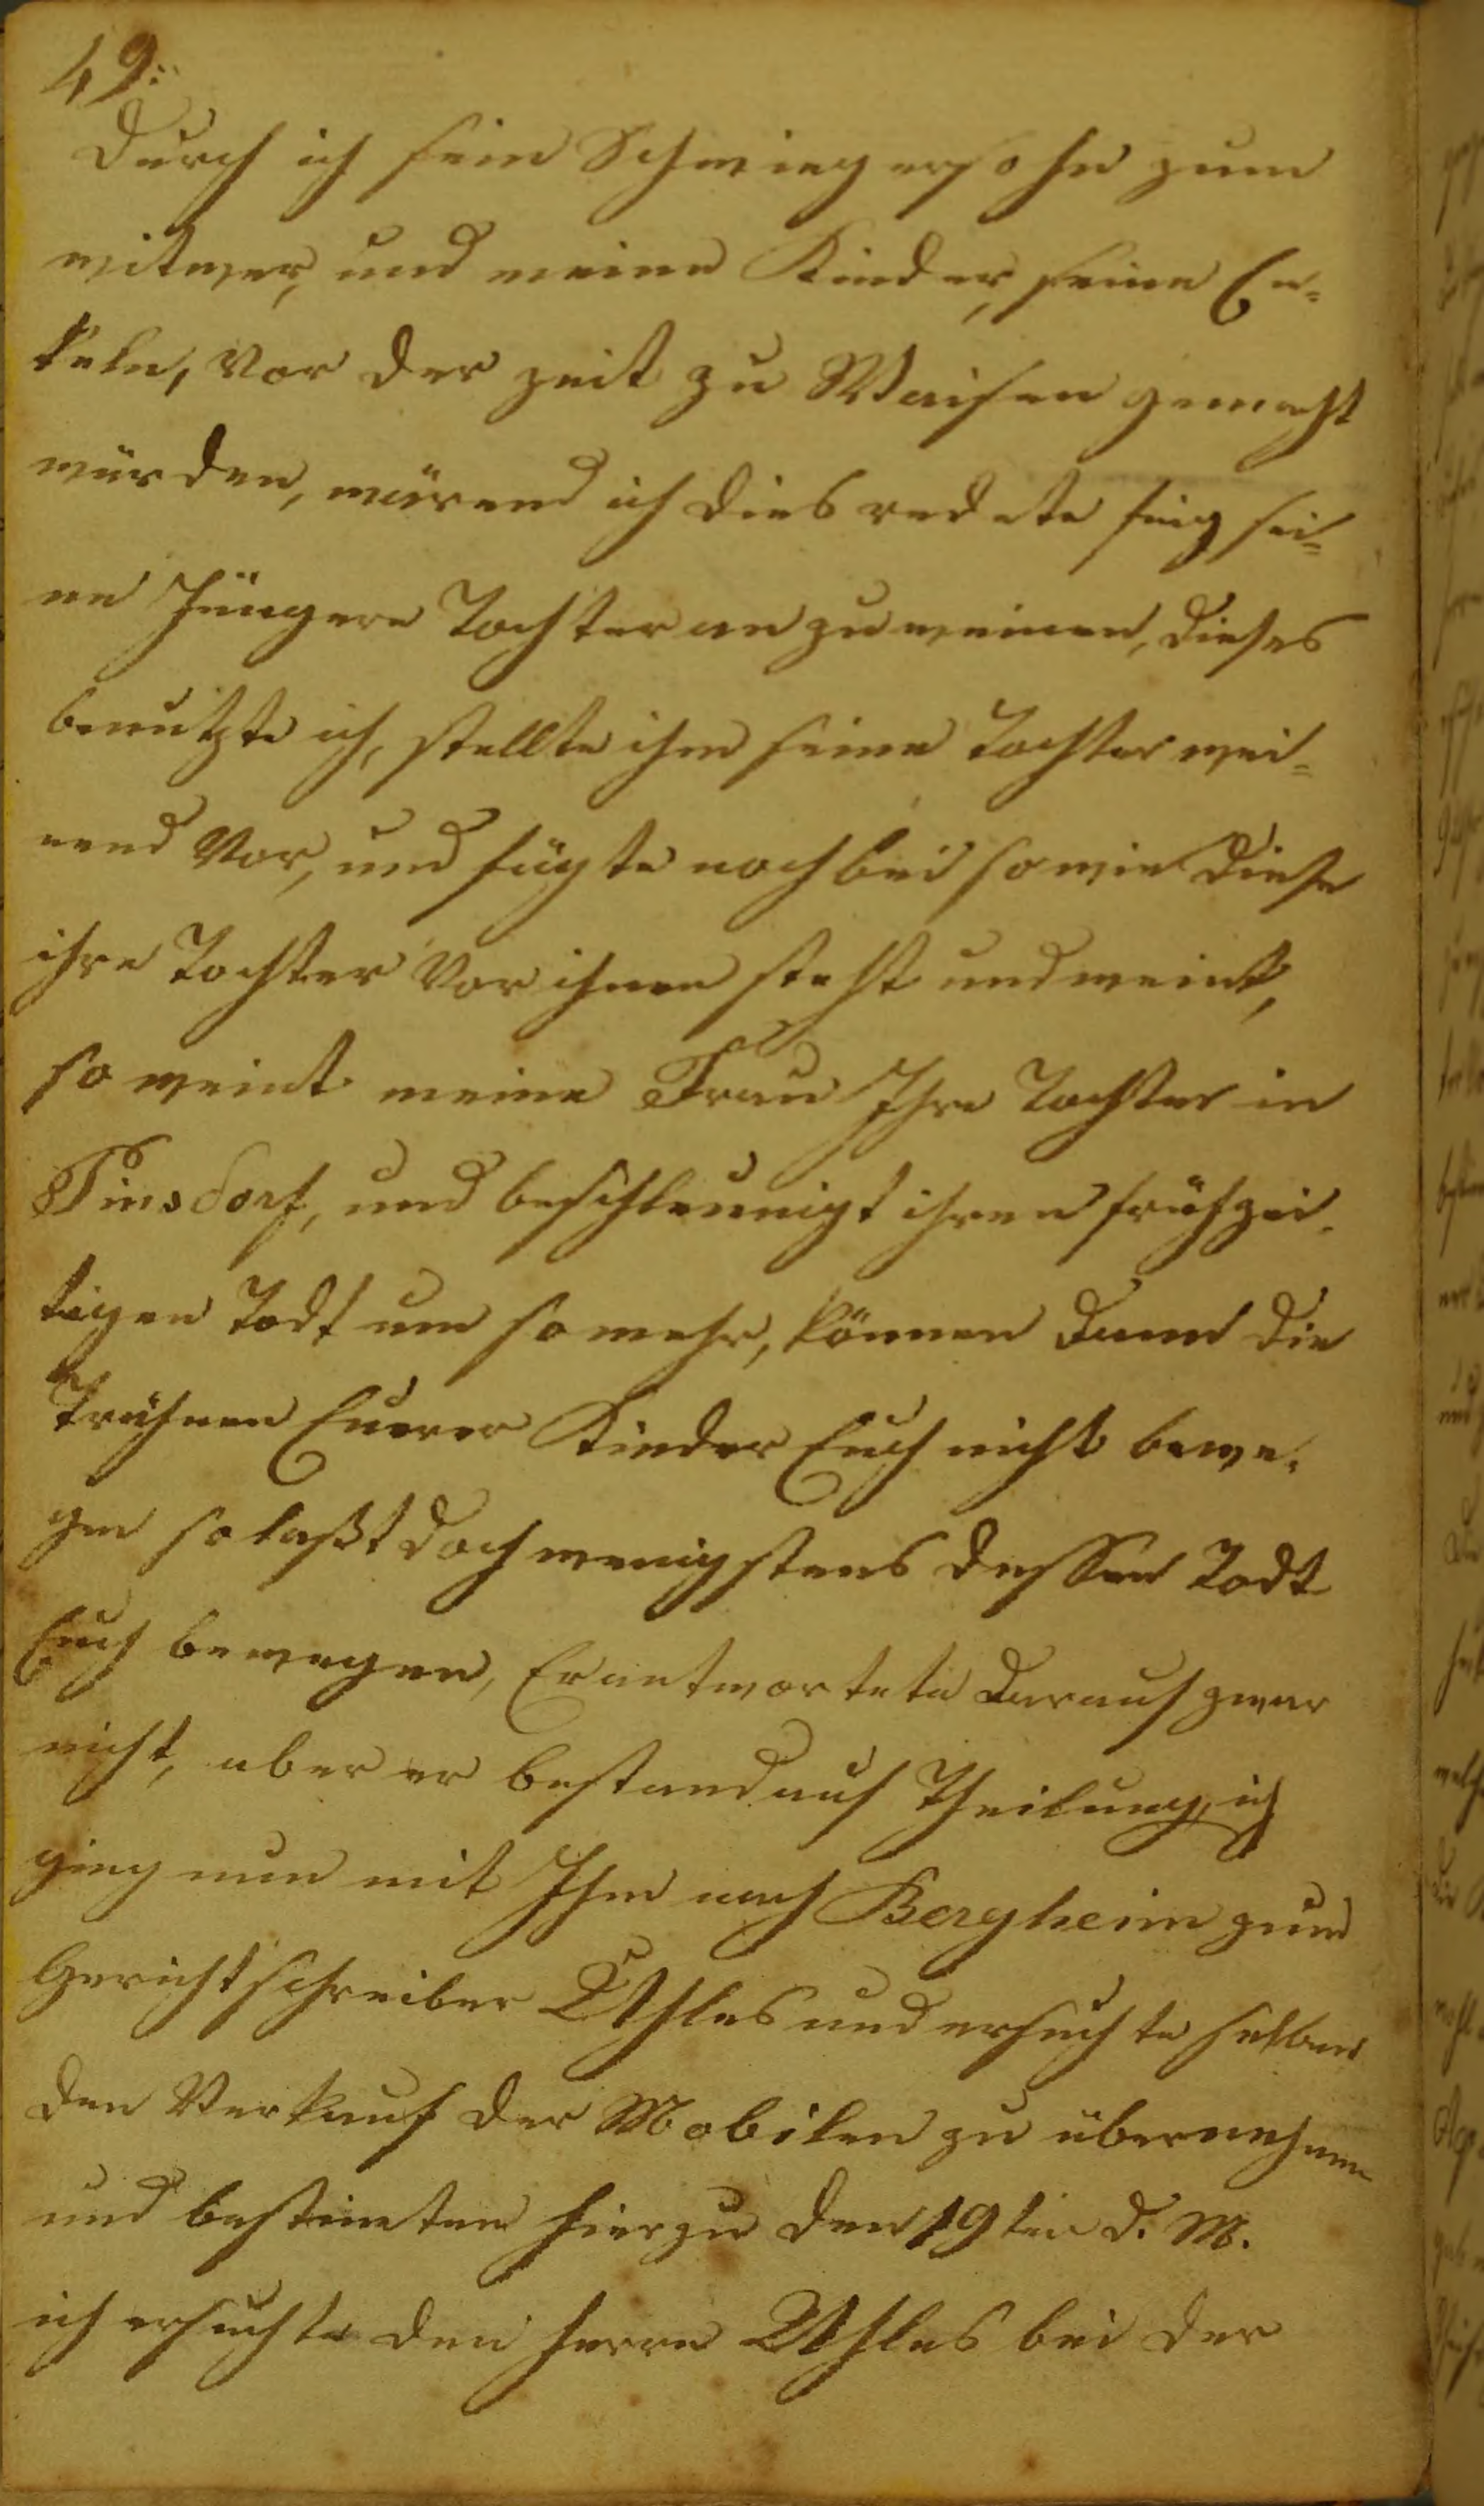 49:
durch ich sein Schwiegersohn zum
witwer, und meine Kinder, seine En=
keln, vor der zeit zu Waisen gemacht
würden, wärend ich dies redete fing sei=
ne Jüngere Tochter an zu weinen, dieses
benutzte ich, stellte ihm seine Tochter wei=
nend vor, und fügte noch bei so wie diese
ihre Tochter vor ihnen steht und weint,
so weint meine Frau Ihre Tochter in
Tinsdorf, und beschleunigt ihren frühzei-
tigen Todt um so mehr, können dann die
Trähnen Euerer Kinder Euch nicht bewe-
gen so laßt doch wenigstens dessen Todt
Euch bewegen, Er antwortete darauf zwar
nicht, aber er bestand auf Theilung, ich
ging nun mit Ihm nach Bergheim zum
Gerichtschreiber Uhles und ersuchte selben
den Verkauf der Mobilen zu übernehmen
und bestimten hierzu den 19ten d. M.
ich ersuchte den Herrn Uhles bei der